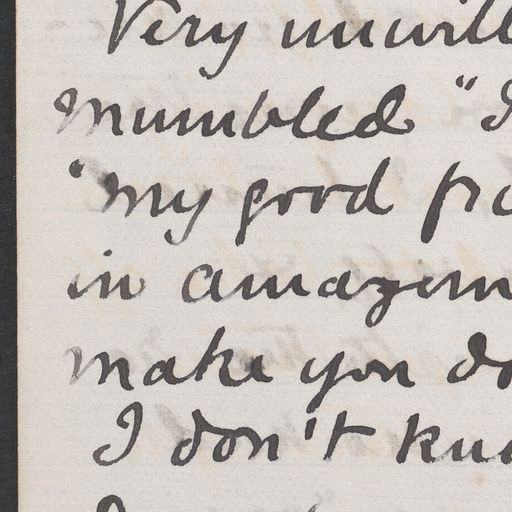 Very unwill
mumbled "I
"My good fri
in amazem
make you do
I don't kn